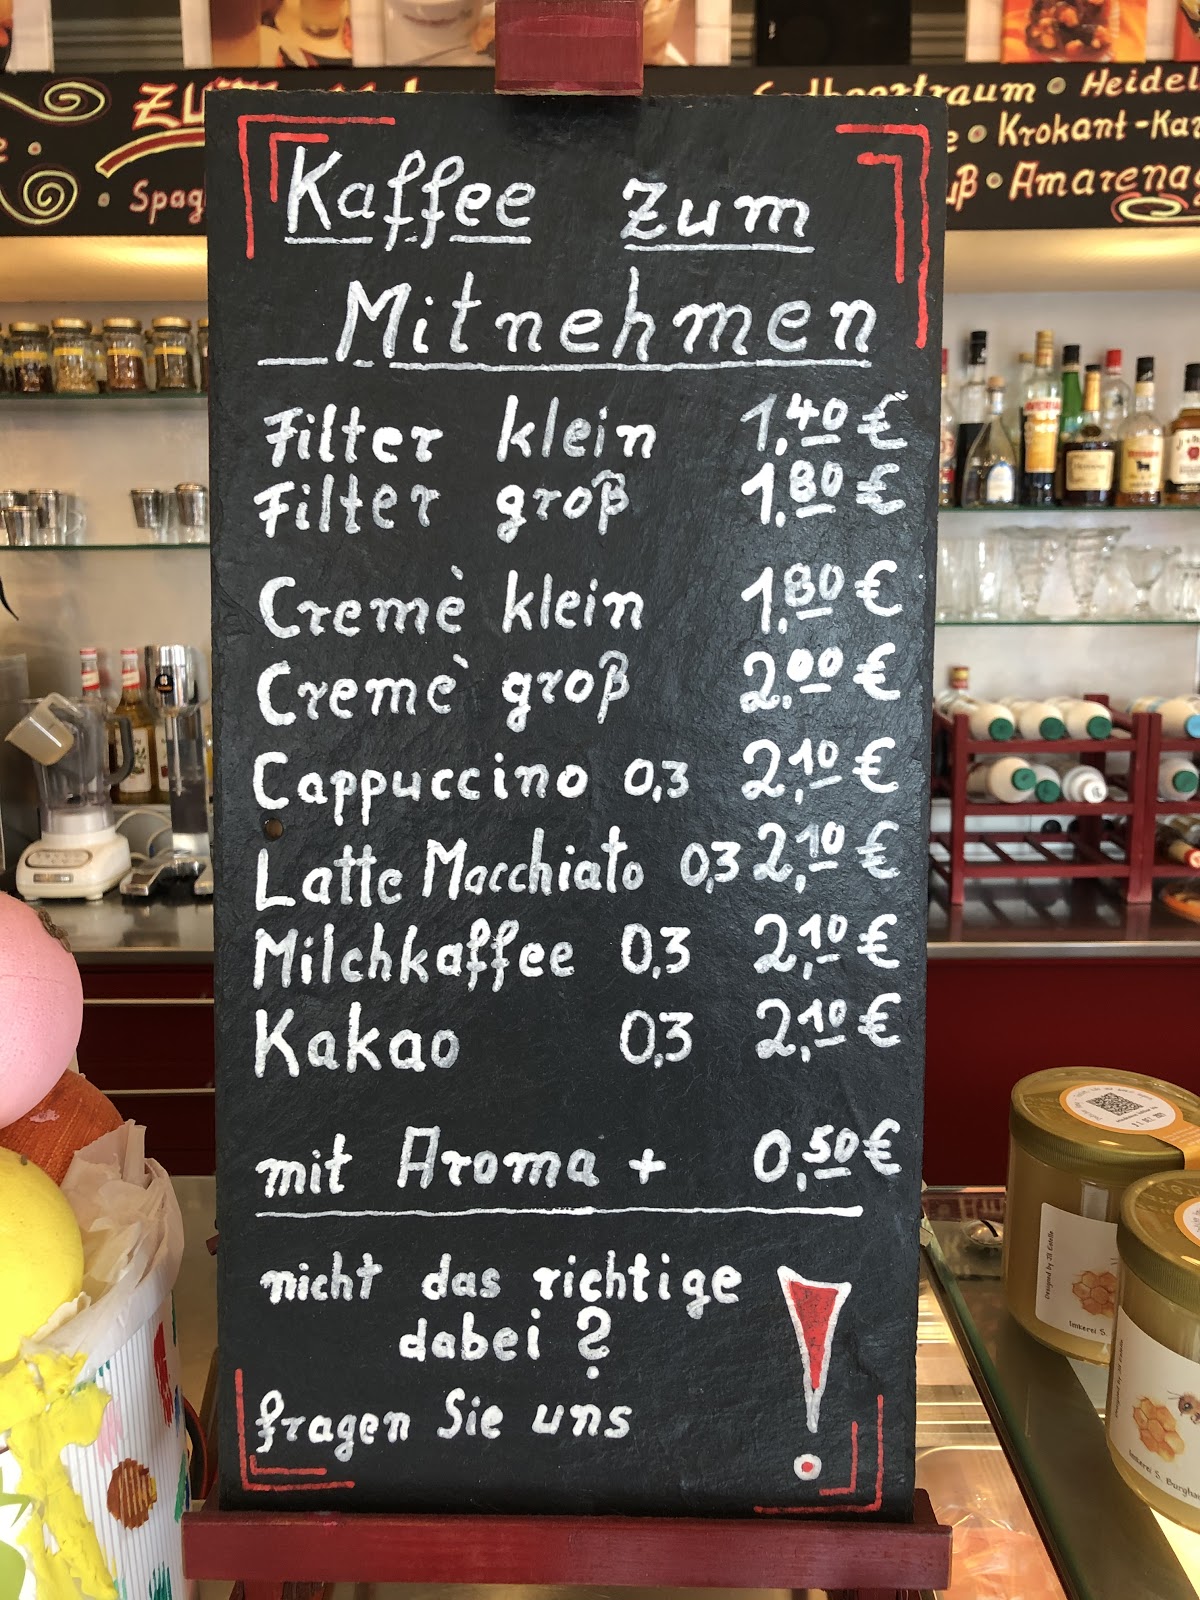 Kaffee zum
Mitnehmen
Filter klein 1,40 €
Filter groß 1,80 €
Cremè klein 1,80 €
Cremè groß 2,00 €
Cappuccino 0,3 2,10 €
Latte Macchiato 0,3 2,10 €
Milchkaffee 0,3 2,10 €
Kakao 0,3 2,10 €
mit Aroma + 0,50 €
nicht das richtige
dabei ?
fragen Sie uns !
Zum
Spag
Erdbeertraum • Heidel
• Krokant-Ka
• Amarena
Designed by JB Estelle
Imkerei S.
Imkerei S. Burgha